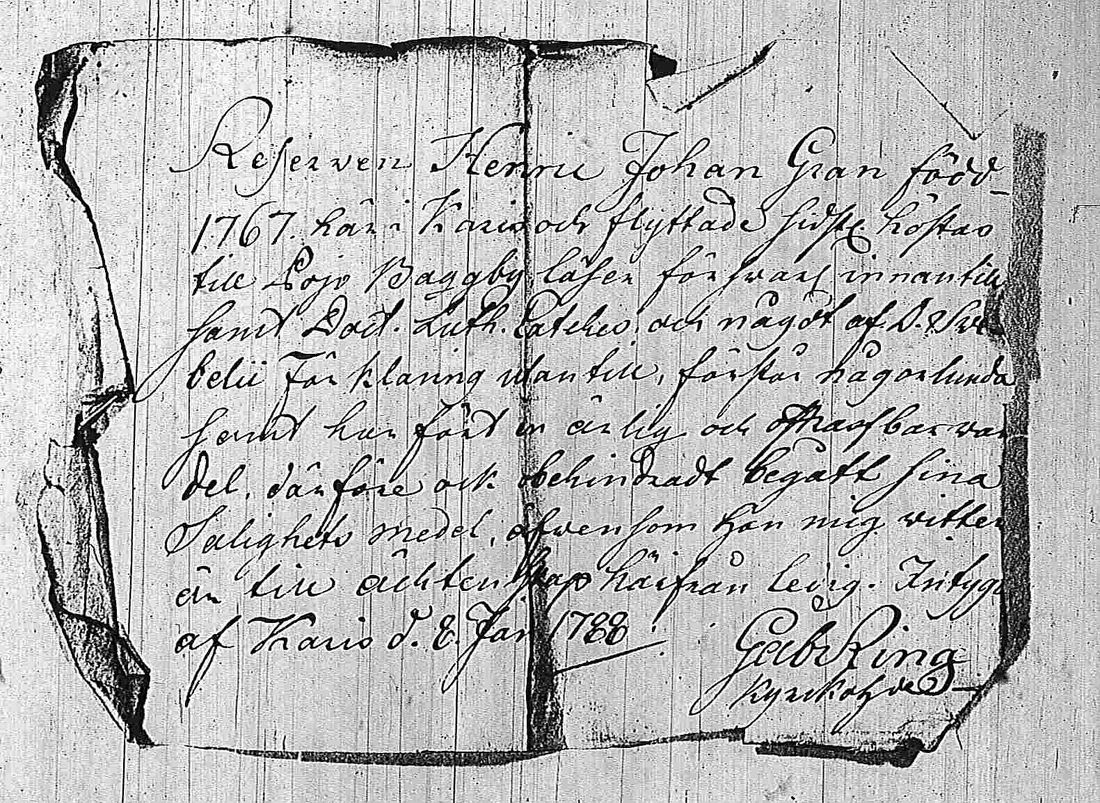 Reserven Henric Johan Gran född
1767. här i Karis och flyttade sidstl. höstas
till Pojo Baggby läser försvarl innantill
samt Doct. Luth. Catches. och något af D. Swe-
belii Förklaring utantill, förstår någorlunda
samt har fört en ärlig och ostraffbar wan
del, därföre ock obehindradt begått sina
Salighets medel, äfwensom han mig witter
är till ächtenskap härifrån ledig. Intygr
af Karis d. 8. Jan 1788.
Gab: Ring
Kyrckohde